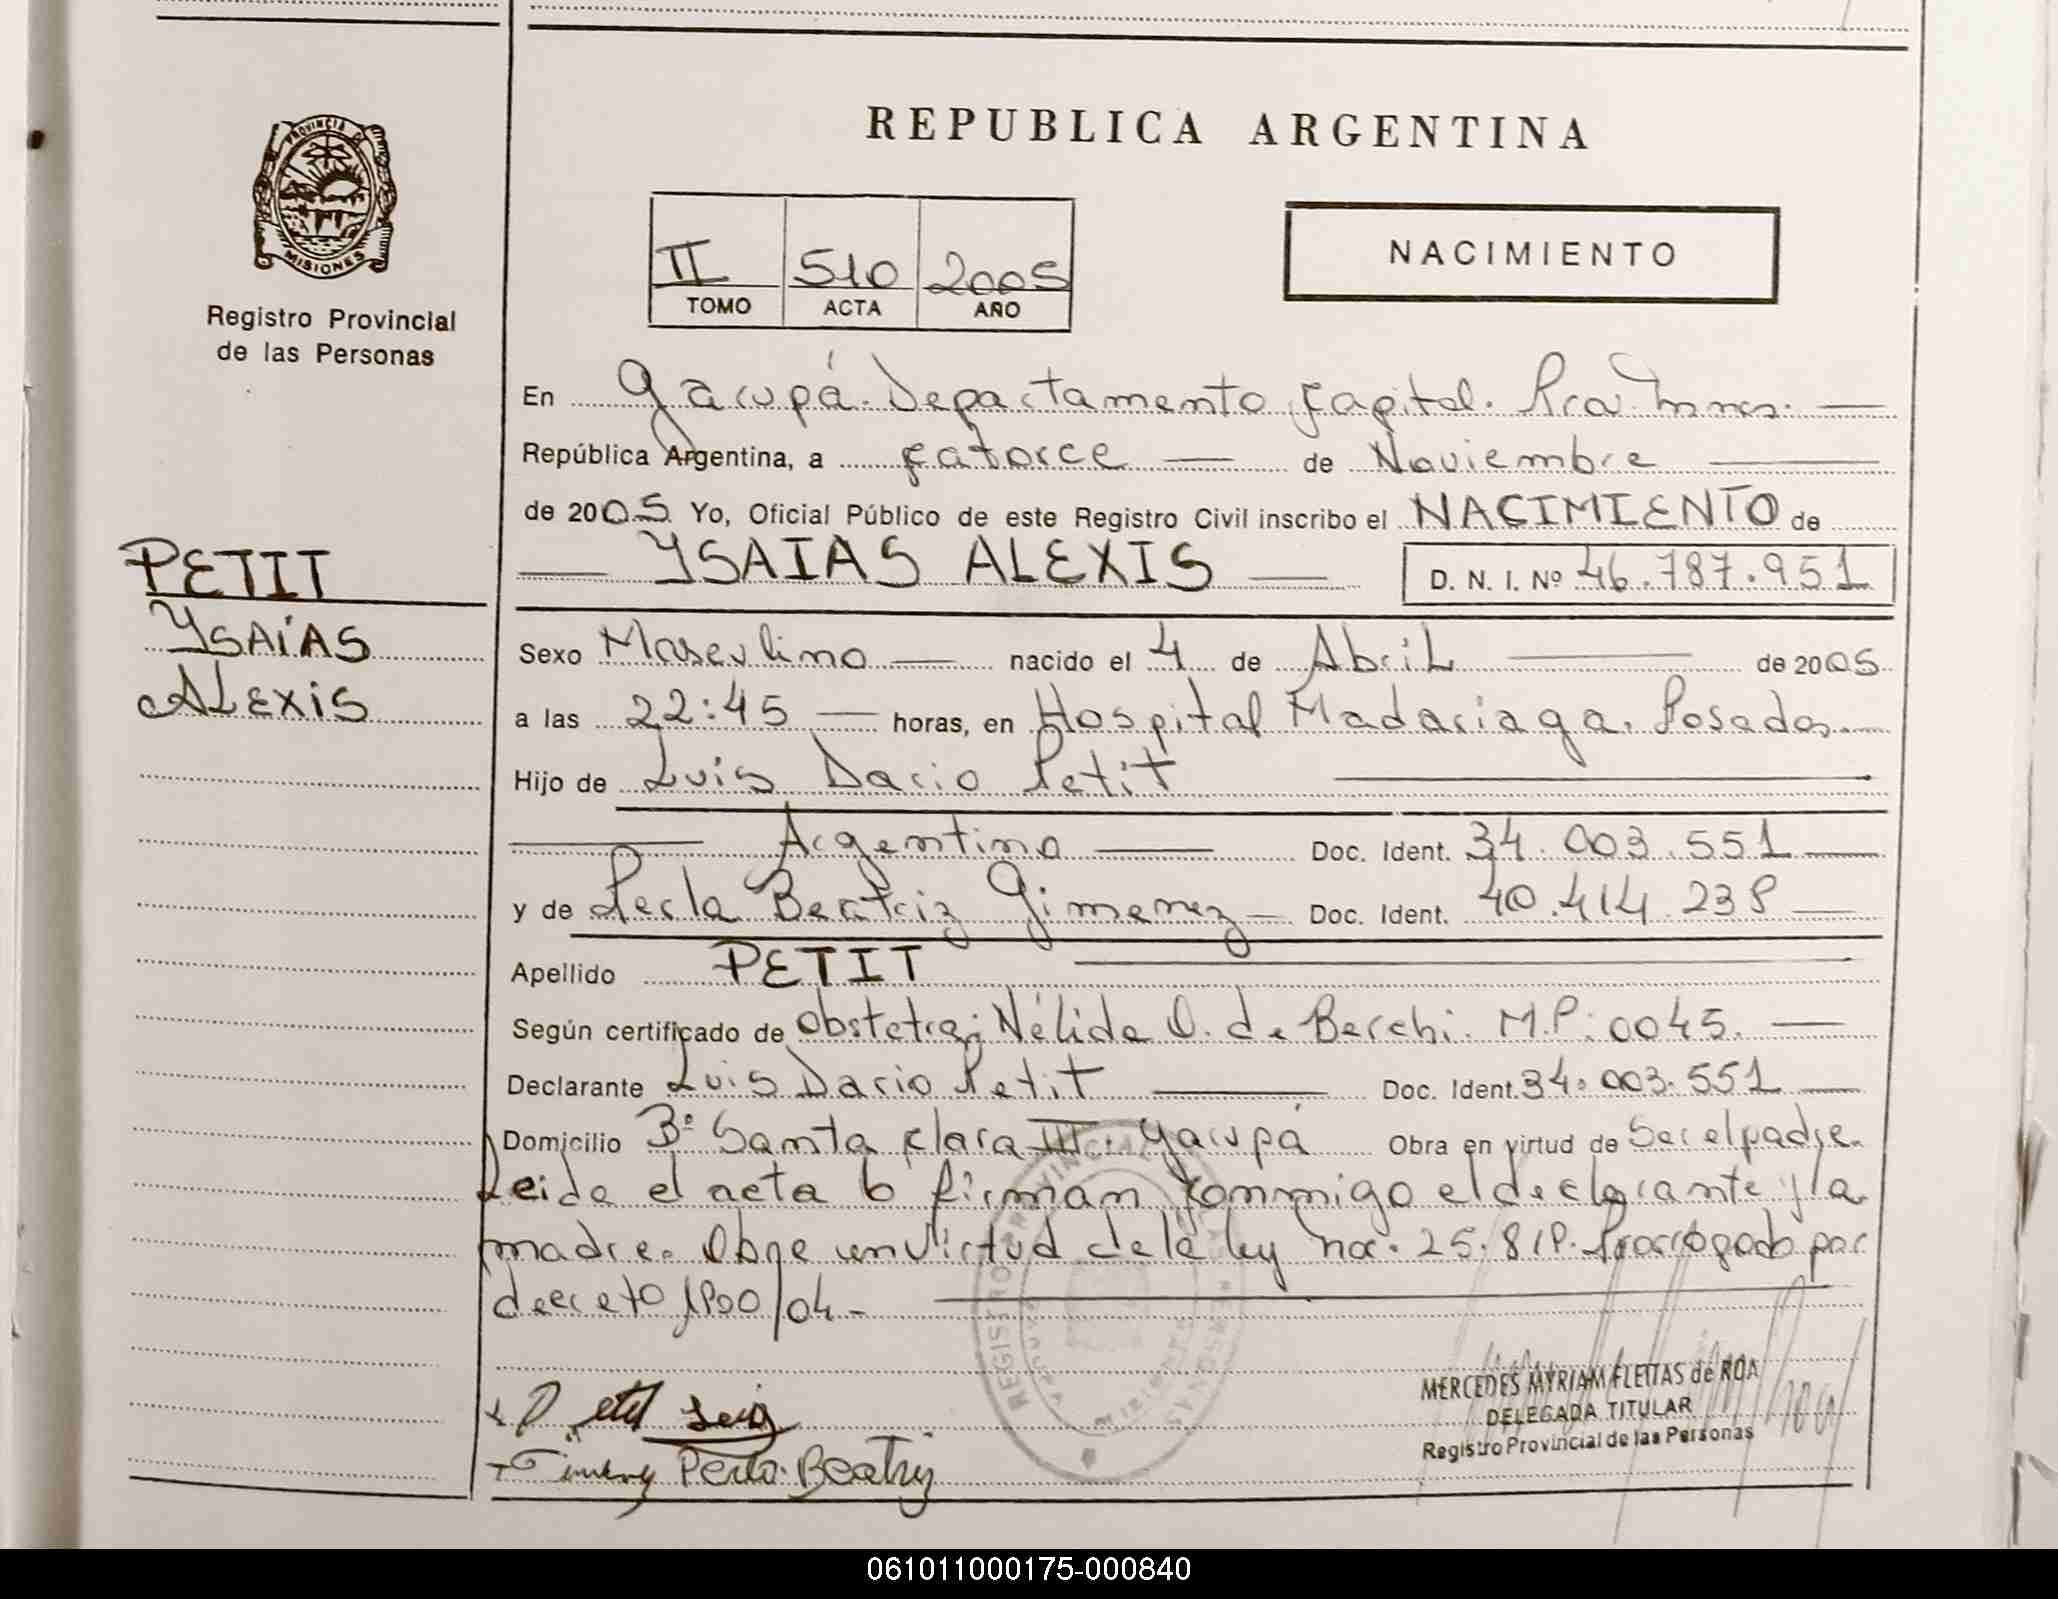 PROVINCIA DE
MISIONES
Registro Provincial
de las Personas
PETIT
YSAÍAS
ALEXIS
REPUBLICA ARGENTINA
II 510 2005
TOMO ACTA AÑO
NACIMIENTO
En Garupá. Departamento Capital. Pcia. Mnes.
República Argentina, a Catorce de Noviembre
de 2005 Yo, Oficial Público de este Registro Civil inscribo el NACIMIENTO de
YSAIAS ALEXIS D. N. I. Nº 46.787.951
Sexo Masculino nacido el 4 de Abril de 2005
a las 22:45 horas, en Hospital Madariaga. Posadas.
Hijo de Luis Dario Petit
Argentino Doc. Ident. 34.003.551
y de Perla Beatriz Gimenez Doc. Ident. 40.414.238
Apellido PETIT
Según certificado de Obstetra; Nélida O. de Berchi. M.P: 0045.
Declarante Luis Dario Petit Doc. Ident. 34.003.551
Domicilio Bº Santa Clara III. Garupá Obra en virtud de Ser el padre.
Leida el acta la firman conmigo el declarante y la
madre. Obra en virtud de la ley nro. 25.818. Prorrogado por
decreto 1800/04-
Petit Luis
Gimenez Perla Beatriz
REGISTRO PROVINCIAL DE LAS PERSONAS
MERCEDES MYRIAM FLEITAS de ROA
DELEGADA TITULAR
Registro Provincial de las Personas
061011000175-000840